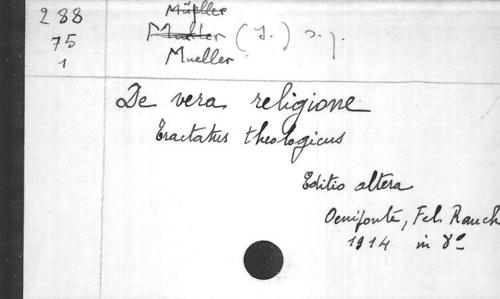 288
75
1
Müller
Mueller (J.) s.j.
Mueller
De vera religione
Tractatus theologicus
Editio altera
Oeniponte, Fel. Rauch
1914 in 8°